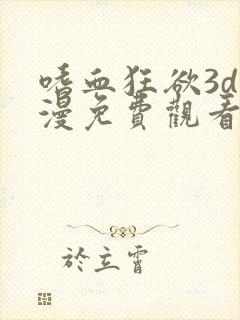 嗜血狂欲3d
漫免費觀看
於立霄